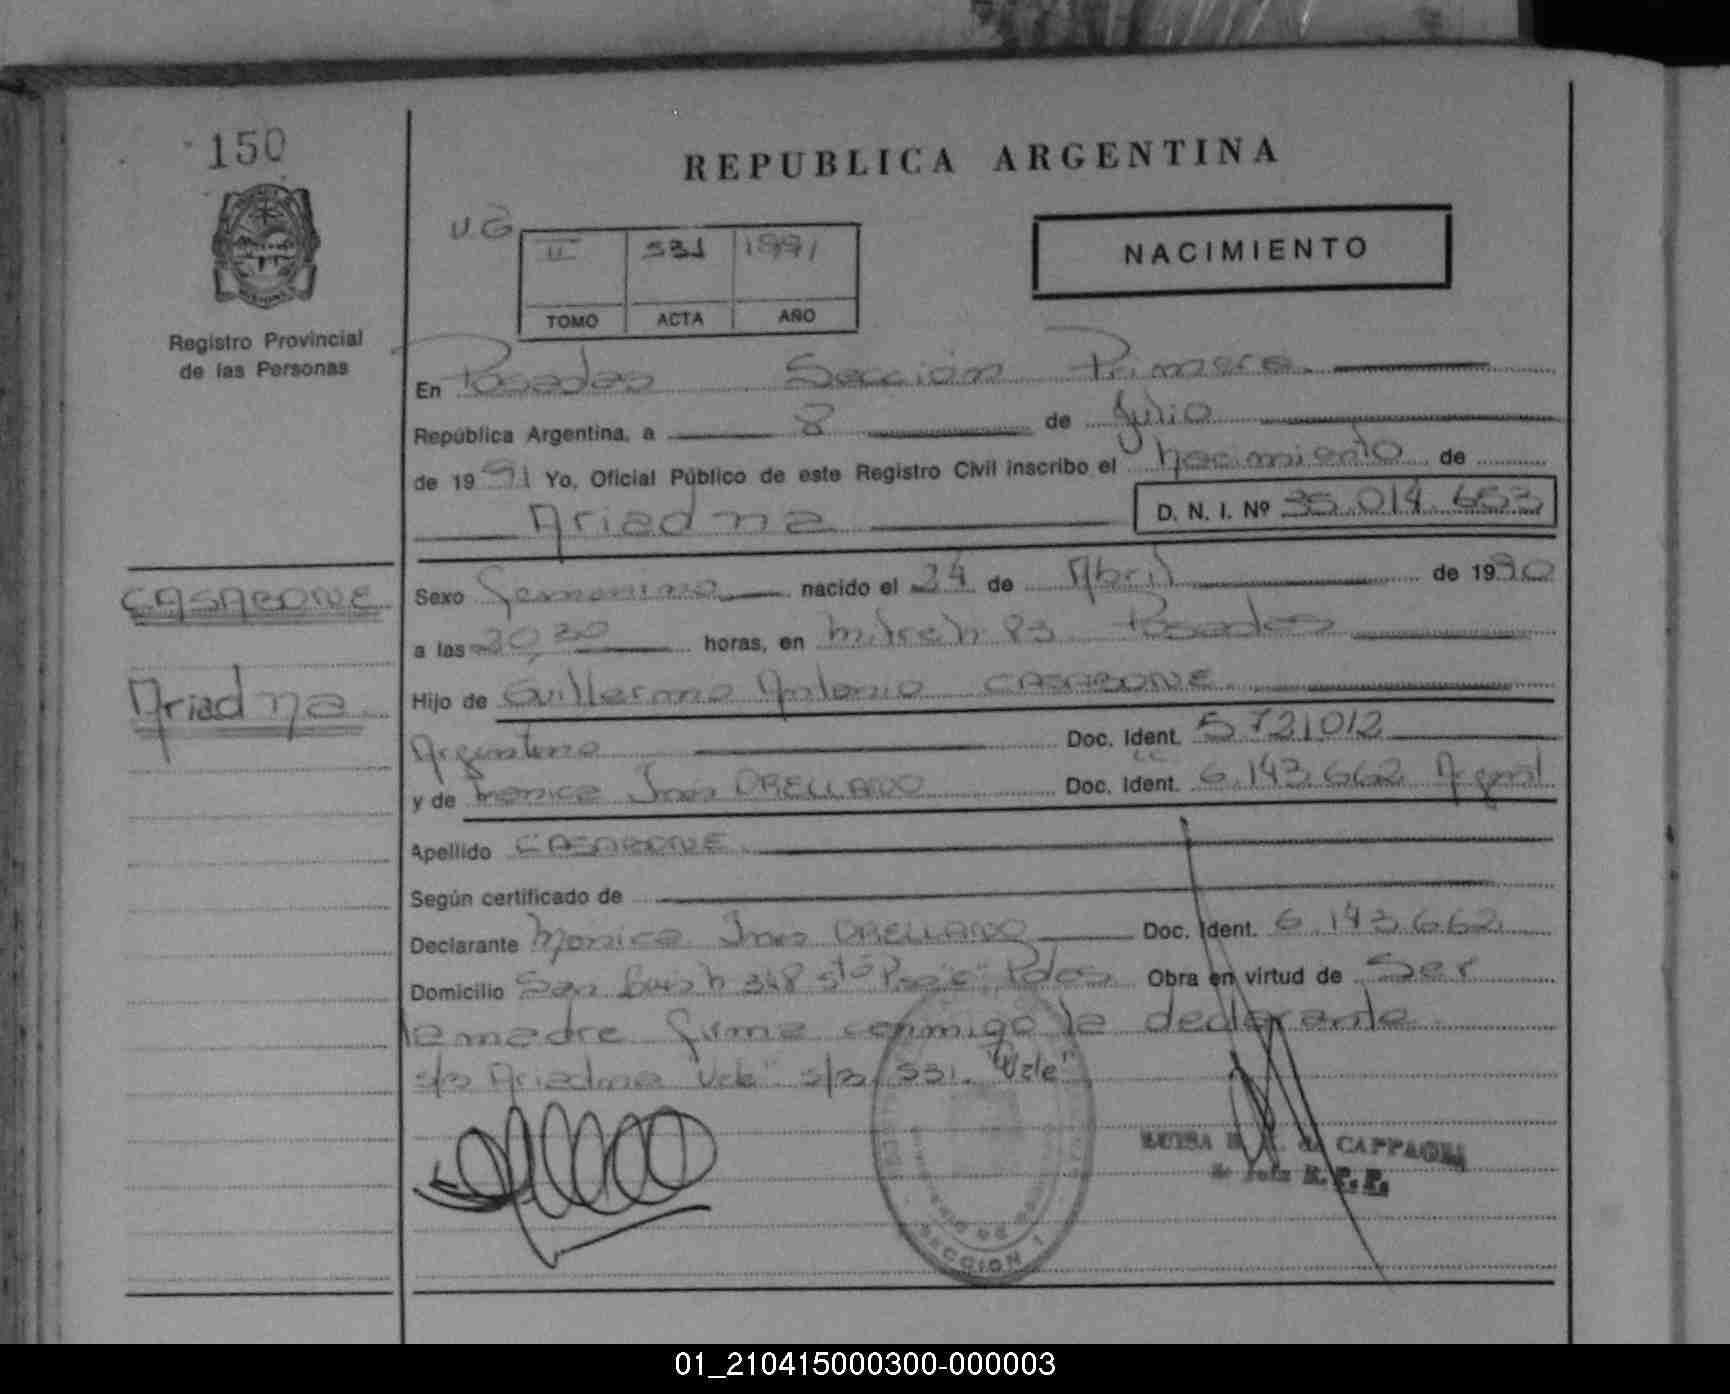 150
REPUBLICA ARGENTINA
Registro Provincial
de las Personas
U.G
II 531 1991
TOMO ACTA AÑO
NACIMIENTO
En Posadas Sección Primera
República Argentina, a 8 de Julio
de 1991 Yo, Oficial Público de este Registro Civil inscribo el nacimiento de
Ariadna D. N. I. Nº 35.014.653
CASABONE
Ariadna
Sexo femenino nacido el 24 de Abril de 1990
a las 20,30 horas, en Mitre Nº 83 Posadas
Hijo de Guillermo Antonio CASABONE
Argentino Doc. Ident. 5721012
y de Monica Ines ORELLANO Doc. Ident. 6.143.662 Argent
Apellido CASABONE
Según certificado de
Declarante Monica Ines ORELLANO Doc. Ident. 6.143.662
Domicilio San Luis Nº 348 Pdas Obra en virtud de Ser
la madre firma conmigo la declarante
s/r Ariadna "Vale" s/r 531. "Vale"
LUISA CAPPAGLI
R. P. P.
SECCION 1
01_210415000300-000003